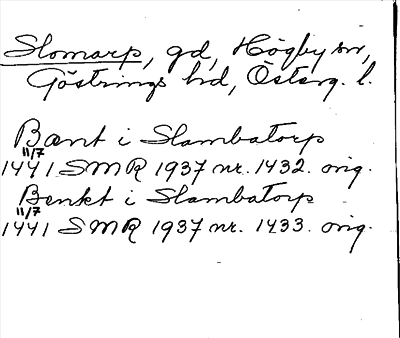 Slomarp, gd, Högby sn,
Göstrings hd, Österg. l.
Bænt i Slambatorp
11/7
1441 SMR 1937 nr. 1432. orig.
Benkt i Slambatorp
11/7
1441 SMR 1937 nr. 1433. orig.